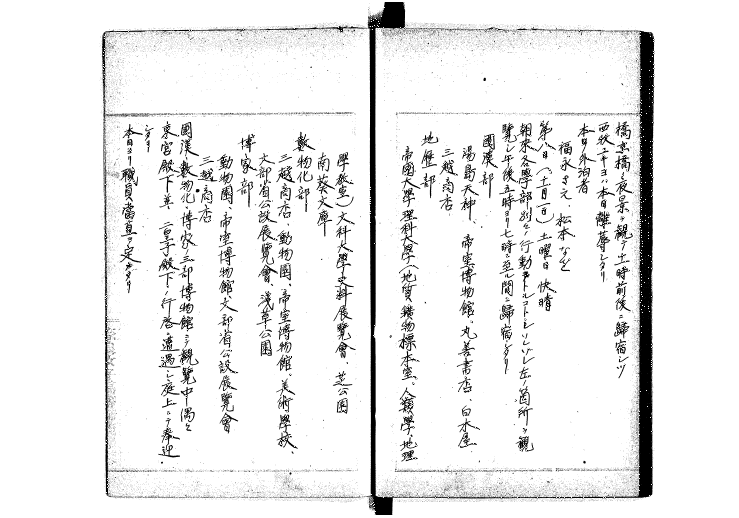 橋京橋ノ夜景ヲ観テ十一時前後ニ歸宿シツ
西牧ニチヨハ本日離幕シタリ
本日外泊者
福永きえ 松本なを
第八日(十一月一日) 土曜日 快晴
朝来各學部別々ノ行動ヲトルコトトシソレゾレ左ノ箇所ヲ観
覧シ午後五時ヨリ七時ニ至ル間ニ歸宿シタリ
國漢部
湯島天神、帝室博物館、丸善書店、白木屋
三越商店
地歴部
帝國大學理科大學(地質鑛物標本室、人類學地理
學教室)文科大學史料展覧會、芝公園
南葵文庫
數物化部
三越商店、動物園、帝室博物館、美術學校、
文部省公設展覧會、淺草公園
博家部
動物園、帝室博物館、文部省公設展覧會
三越商店
國漢、數物化、博家ノ三部博物館ニテ観覧中偶々
東宮殿下並ニ二皇子殿下ノ行啓ニ遭遇シ庭上ニテ奉迎
シタリ
本日ヨリ職員當直ヲ定メタリ